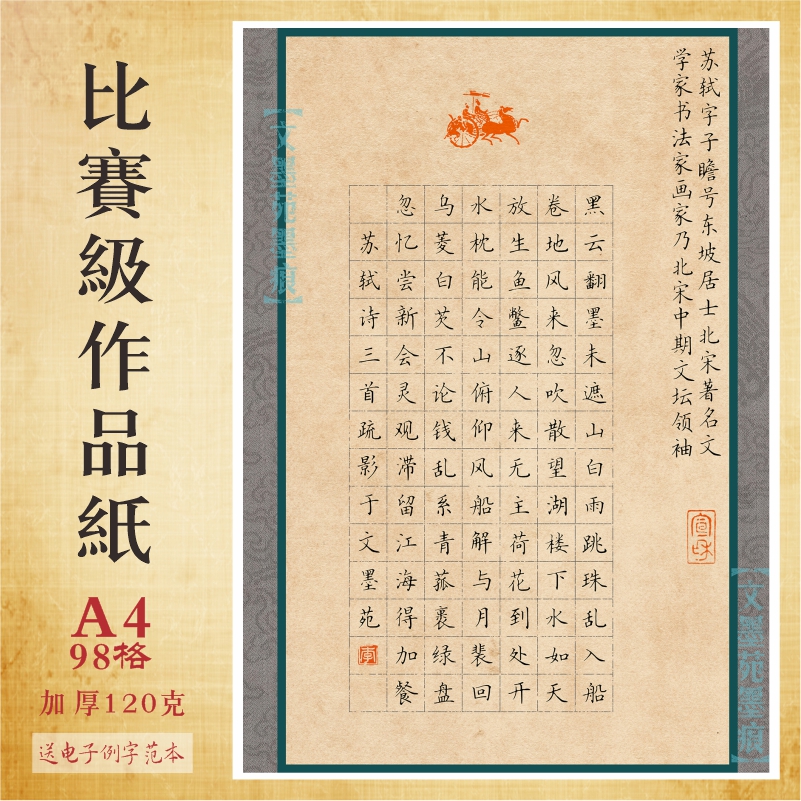 比賽級作品紙
A4
98格
加厚120克
送电子例字范本
苏轼字子瞻号东坡居士北宋著名文
学家书法家画家乃北宋中期文坛领袖
宣和
黑云翻墨未遮山白雨跳珠乱入船
卷地风来忽吹散望湖楼下水如天
放生鱼鳖逐人来无主荷花到处开
水枕能令山俯仰风船解与月裴回
乌菱白芡不论钱乱系青菰裹绿盘
忽忆尝新会灵观滞留江海得加餐
苏轼诗三首疏影于文墨苑
【文墨苑墨痕】
【文墨苑墨痕】